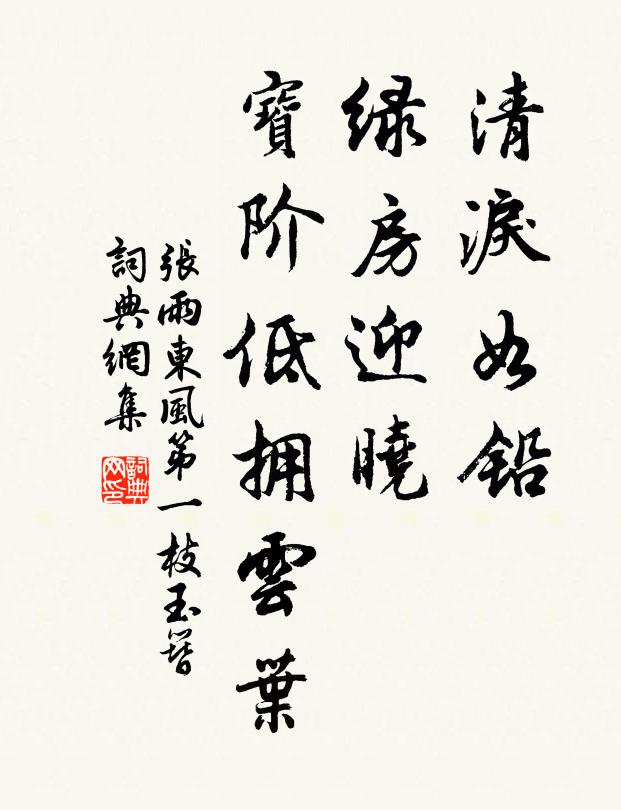 清淚如鉛
绿房迎曉
寶阶低拥雲葉
張雨東風第一枝玉簪
詞典網集
詞典网印